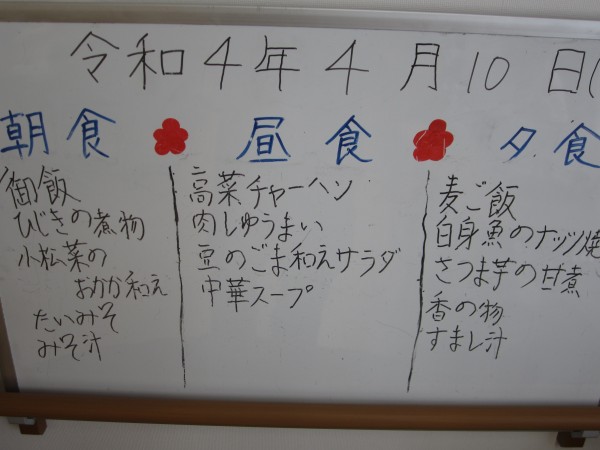 令和4年4月10日(
朝食
昼食
夕食
御飯
ひじきの煮物
小松菜の
おかか和え
たいみそ
みそ汁
高菜チャーハン
肉しゅうまい
豆のごま和えサラダ
中華スープ
麦ご飯
白身魚のナッツ焼
さつま芋の甘煮
香の物
すまし汁